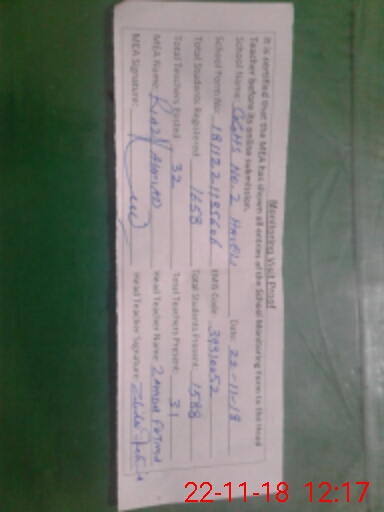 Monitoring Visit Proof
It is certified that the MEA has shown all entries of the School Monitoring Form to the Head
Teacher before its online submission.
School Name: No. 2 Date: 22-11-18
School Form No: EMIS Code: 39310052
Total Students Registered 1658 Total Students Present: 1588
Total Teachers Posted 32 Total Teachers Present: 31
MEA Name: Riaz Ahmad Head Teacher Name: Zahida Fatima
MEA Signature: Head Teacher Signature:
22-11-18 12:17